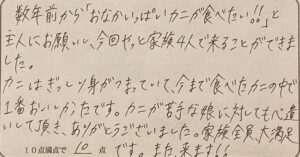 数年前から「おなかいっぱいカニが食べたい!!」と
主人にお願いし、今回やっと家族4人で来ることができま
した。
カニはぎっしり身がつまっていて、今まで食べたカニの中で
1番おいしかったです。カニが苦手な娘に対しても心遣
いして頂き、ありがとうございました。家族全員、大満足
10点満点で 10 点 です。また、来ます!!